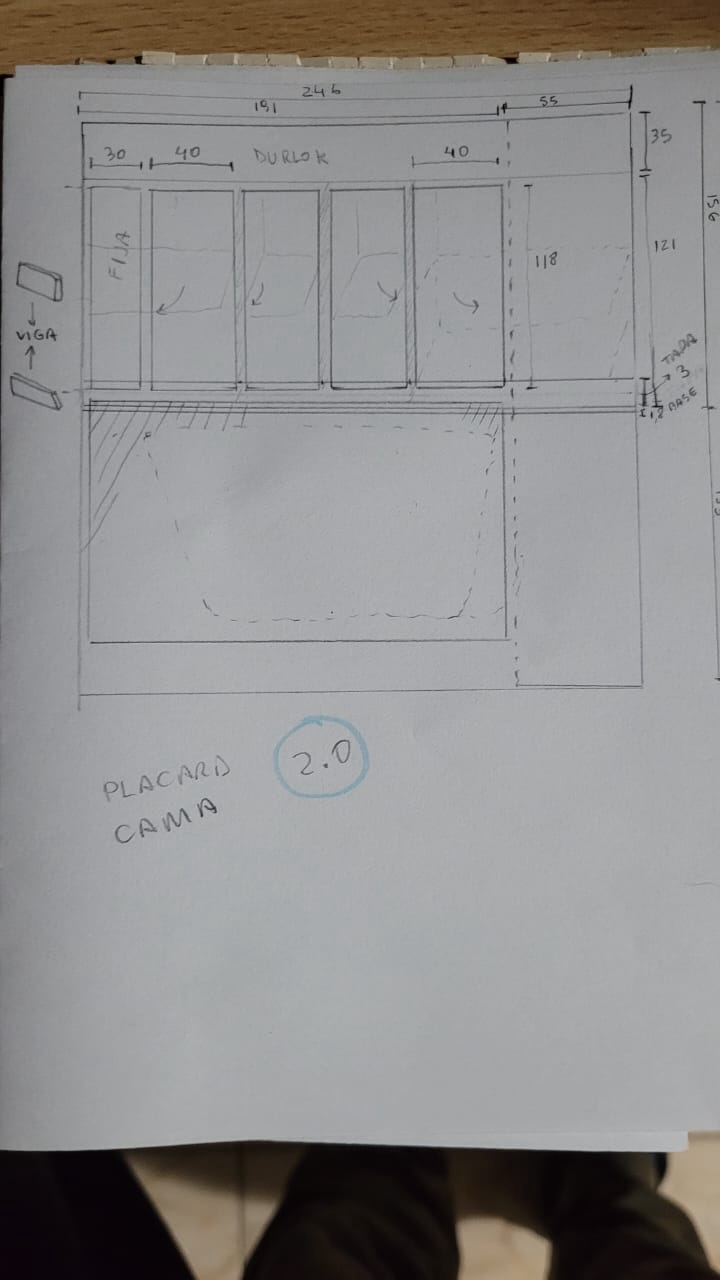 246
191
55
30
40
DURLOK
40
35
156
FIJA
118
121
VIGA
TAPA
3
1,8 BASE
PLACARD
2.0
CAMA